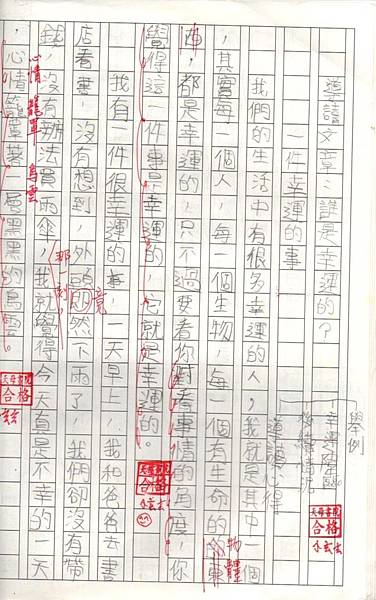 舉例
幸運際遇
後續情況
導讀心得
導讀文章：誰是幸運的？
一件幸運的事
我們的生活中有很多幸運的人，我就是其中一個
，其實每一個人，每一個生物，每一個有生命的物體
西，都是幸運的，只不過要看你對看事情的角度，你
覺得這一件事是幸運的，它就是幸運的。
我有一件很幸運的事，一天早上，我和爸爸去書
店看書，沒有想到，外頭竟然下雨了，我們卻沒有帶
錢，沒有辦法買雨傘，我就覺得今天真是不幸的一天
那一刻，
，心情籠罩著一層黑黑的烏雲。
心情 籠罩 烏雲
天母書院
合格
天母書院
合格
天母書院
合格